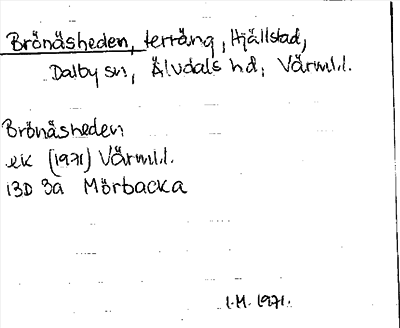 Brönäsheden, terräng, Hjällstad,
Dalby sn, Älvdals hd, Värml.l.
Brönäsheden
ek (1971) Värml.l.
13D 3a Mörbacka
I.M. 1971.